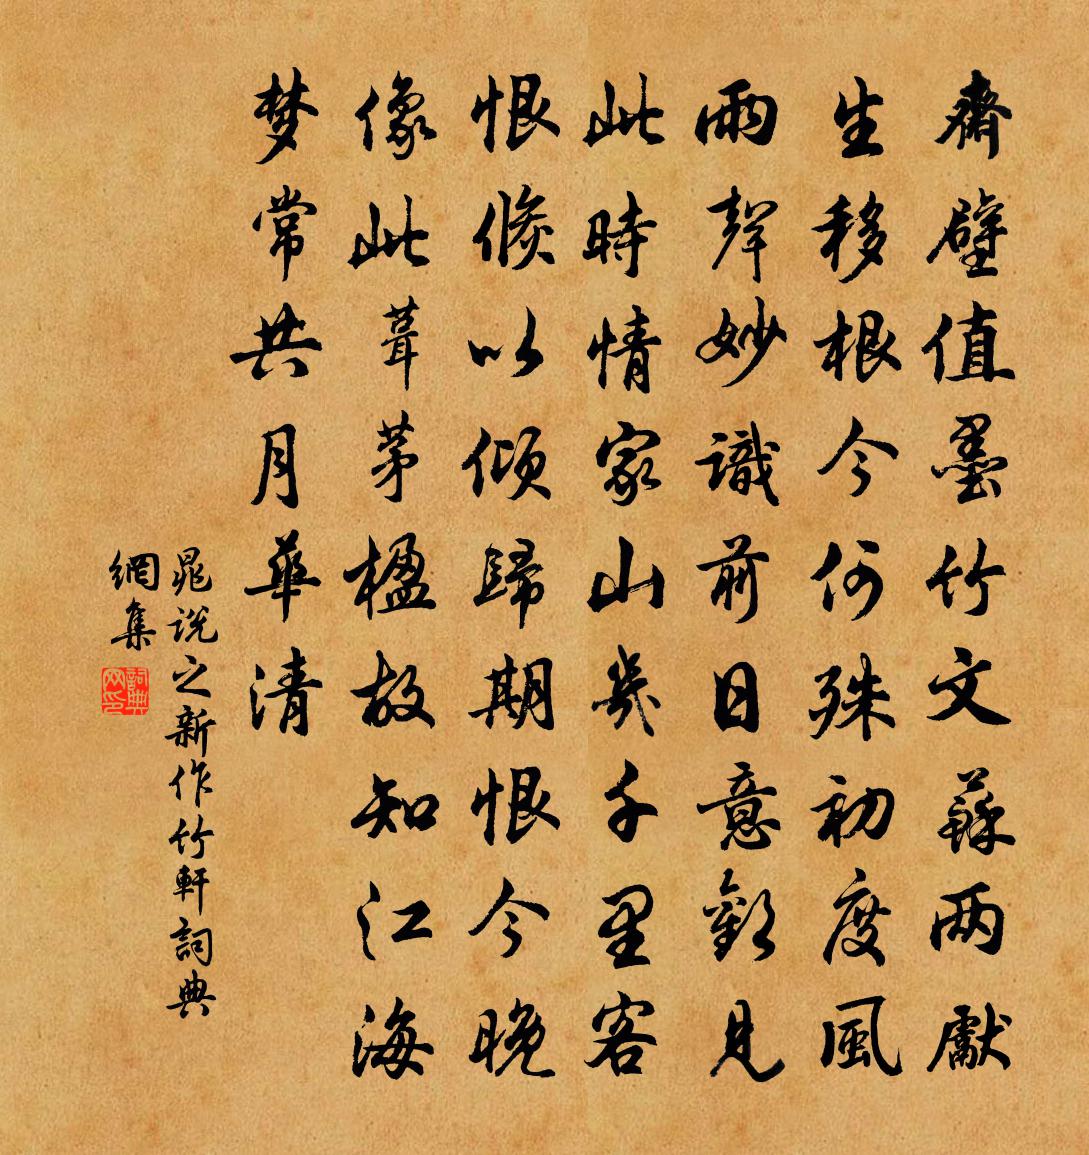 齋壁值墨竹文蘇两獻
生移根今何殊初度風
雨聲妙識前日意歡見
此時情家山幾千里客
恨倏以傾歸期恨今晚
像此葺茅楹故知江海
梦常共月華清
晁说之新作竹軒詞典
網集
詞典網印